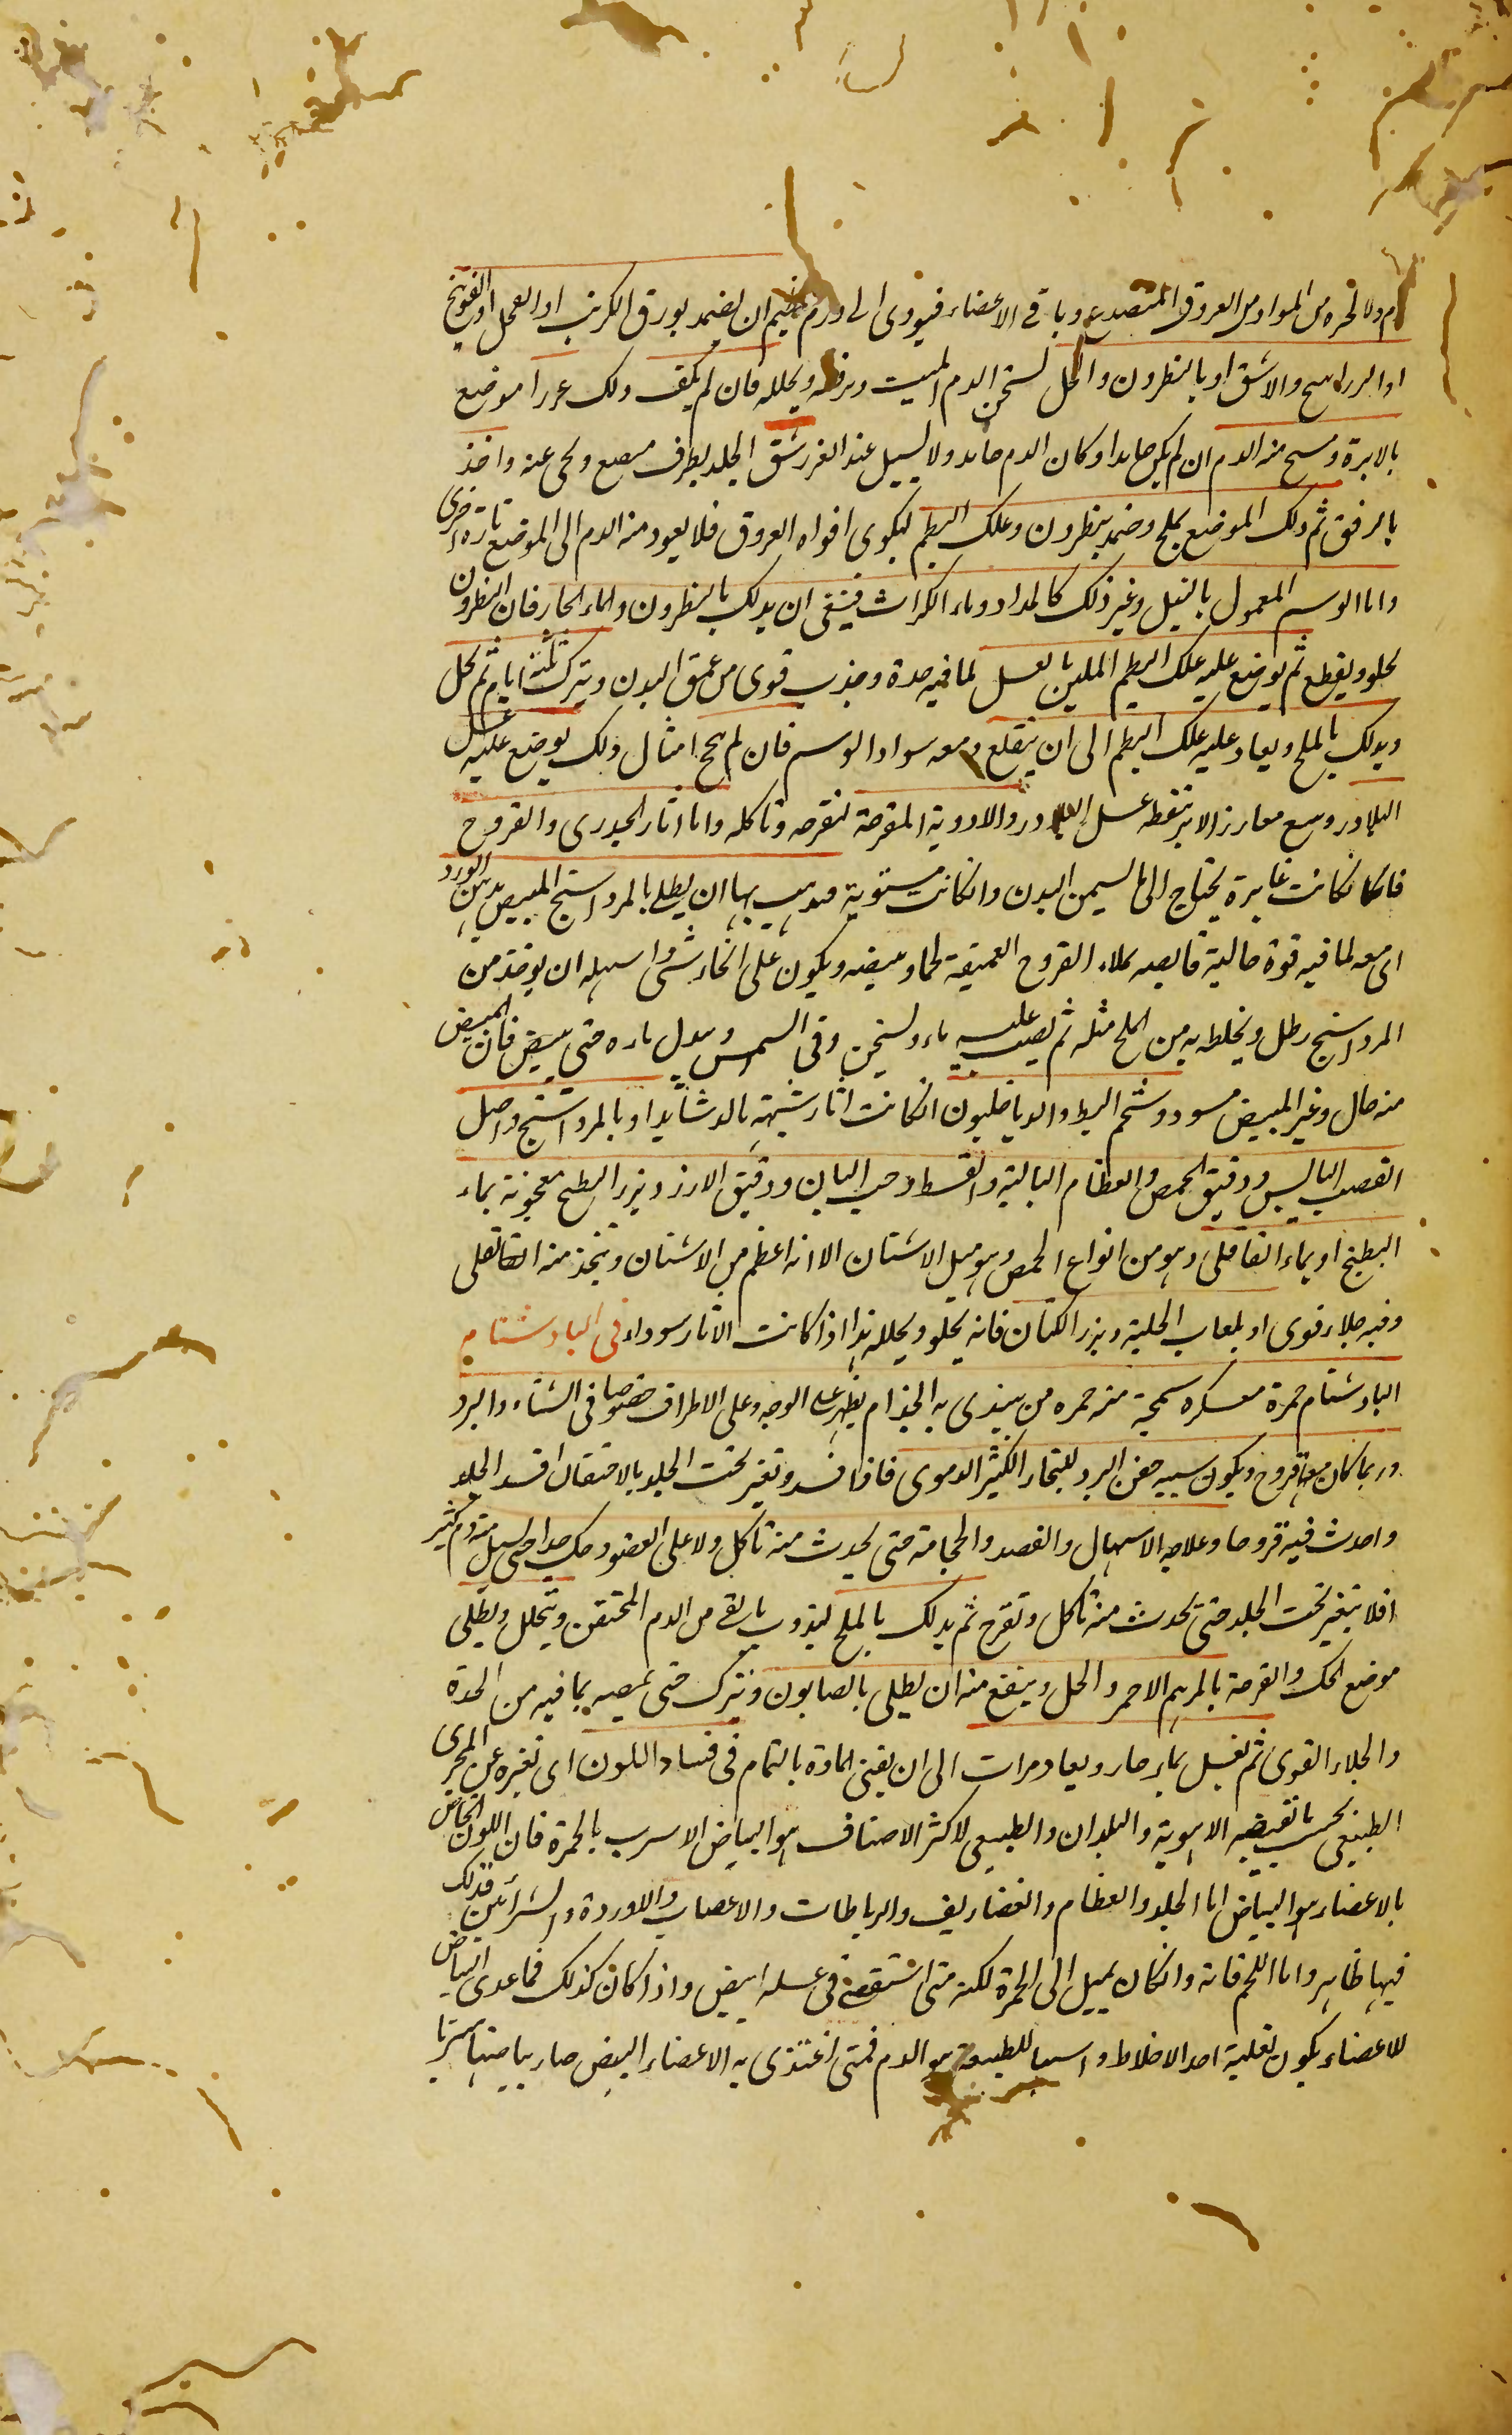 دم ولانحره من المواد من العروق المتصدع وباقى الاعضاء فيودى الى ورم ان يضمد بورق الكرنب او الفجل او الفوتنج
او الزراسح والاشق او بالنطرون والخل لسخن الدم الميت ويرققه ويحلله فان لم يكف ذلك غررا موضع
بالابرة ومسح منه الدم ان لم يكن جامدا وكان الدم جامد ولا يسيل عند الغرز شق الجلد بطرف مبضع ونحى عنه واخذ
بالرفق ثم دلك الموضع بملح وضمد بنطرون وعلك البطم ليكوى افواه العروق فلا يعود منه الدم الى الموضع تارة اخرى
واما الوسم المعمول بالنيل وغير ذلك كالمداد وماء الكراث فينبغى ان يدلك بالنطرون والماء الحار فان النطرون
يجلو ويقطع ثم يوضع عليه علك البطم الملين بالعسل لما فيه حدة وجذب قوى من عمق البدن ويترك ثلثة ايام ثم يحل
ويدلك بالملح ويعاد عليه علك البطم الى ان ينقلع ومعه سواد الوسم فان لم ينجح امثال ذلك يوضع عليه عسل
البلادر وسع مغارز الابر بنقطه عسل البلادر والادوية المقرحة لتقرحه وتاكله واما اثار الجدرى والقروح
فانها كانت غابرة يحتاج الى تسمين البدن وان كانت مستوية فيذهب بها ان يطلى بالمرداسنج المبيض بدهن الورد
اى معه لما فيه قوة جالية قابضه يملاء القروح العميقة لحما وسبضه ويكون على اتخاذ شى واسهله ان يوخذ من
المرداسنج رطل ويخلط به من الملح مثله ثم يصب عليه ماء ويسخن وفى الشمس ويبدل ماءه حتى يبيض فان المبيض
منه جال وغير المبيض مسود وشحم البط والدياخليون ان كانت اثار شبيهة بالدشايد او بالمرداسنج واصل
القصب اليابس ودقيق الحمص والعظام البالية والقسط وحب البان ودقيق الارز وبزر البطيخ معجونة بماء
البطيخ او بماء القاقلى وهو من انواع الحمص وهو مثل الاشنان الا انه اعظم من الاشنان ويتخذ منه القلى
وفيه جلاء قوى او بلعاب الحلبة وبزر الكتان فانه يجلو ويحلل هذا اذا كانت الاثار سوداء فى البادشنام
البادشنام حمرة منكره سمجة منه حمره من يبتدى به الجذام يظهر على الوجه وعلى الاطراف خصوصا فى الشتاء والبرد
وربما كان معها قروح ويكون سببه حقن البرد للبخار الكثير الدموى فاذا فسد وتغير تحت الجلد بالاحتقان افسد الجلد
واحدث فيه قروحا وعلاجه الاسهال والفصد والحجامة حتى يحدث منه تاكل ولا على العضو وحك جدا حتى يسيل منه دم كثير
افلا يتغير تحت الجلد حتى يحدث منه تاكل وتقرح ثم يدلك بالملح ليذوب ما بقى من الدم المحتقن ويتحلل ويطلى
موضع الحك والقرحة بالمرهم الاحمر والخل وينفع منه ان يطلى بالصابون ويترك حتى يمصه بما فيه من الحدة
والجلاء القوى ثم يغسل بماء حار ويعاد مرات الى ان يفنى المادة بالتمام فى فساد اللون اى تغيره عن المجرى
الطبيعى بحسب ما تقتضيه الاهوية والبلدان والطبيعى لاكثر الاصناف هو البياض الاسرب بالحمرة فان اللون الخاص
بالاعضاء هو البياض اما الجلد والعظام والغضاريف والرباطات والاعصاب والاوردة والشرائين فذلك
فيها ظاهر واما اللحم فانه وان كان يميل الى الحمرة لكنه متى استقصى فى غسله ابيض واذا كان كذلك فما عدى البياض
للاعضاء يكون لغلبة احد الاخلاط واسبها للطبيعة هو الدم فمتى اغتذى به الاعضاء البيض صار بياضها مشربا